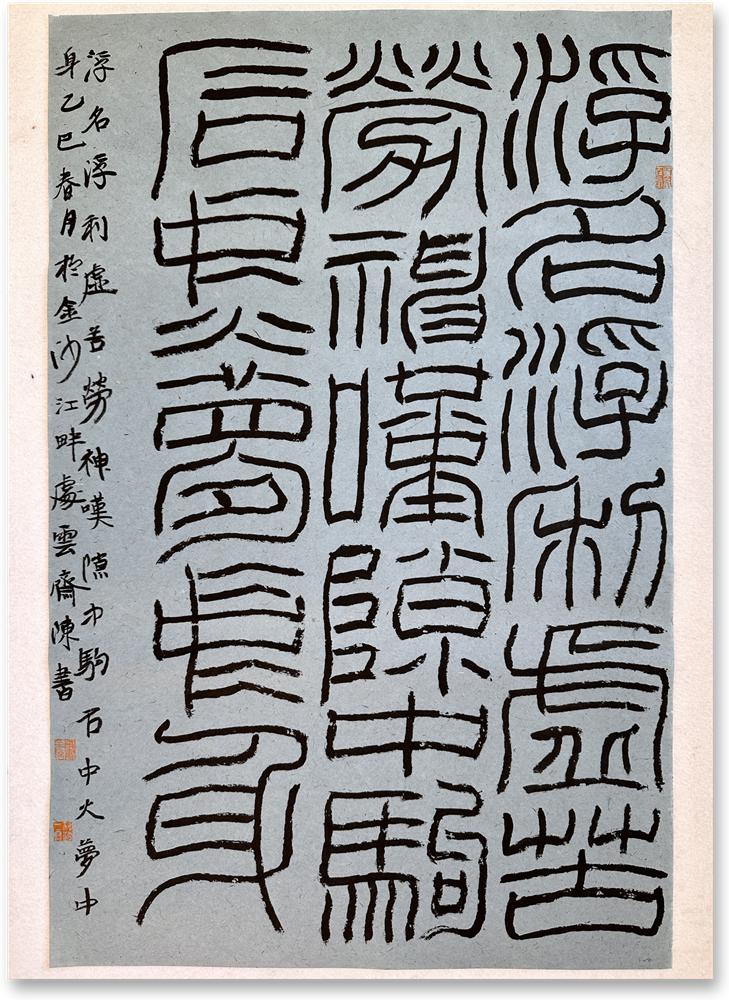 浮名浮利虛苦
勞神嘆隙中駒
石中火夢中身
浮名浮利虛苦勞神嘆隙中駒石中火夢中
身乙巳春月於金沙江畔處雲齋陳書